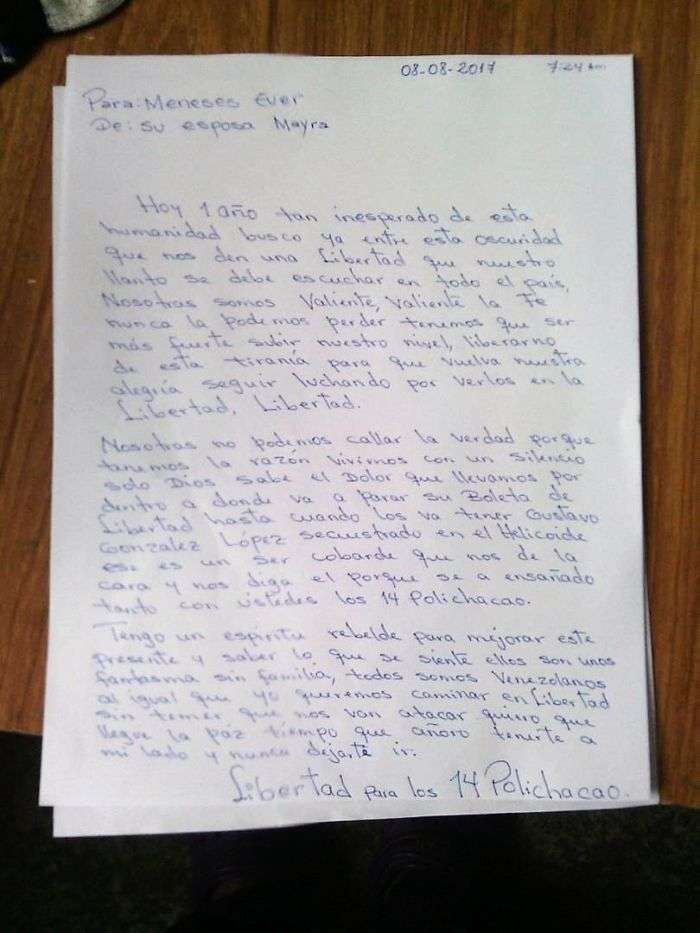 08-08-2017 7:24 am
Para: Meneses Ever
De: su esposa Mayra
Hoy 1 año tan inesperado de esta
humanidad busco ya entre esta oscuridad
que nos den una Libertad que nuestro
llanto se debe escuchar en todo el país,
Nosotras somos Valiente, Valiente la Fe
nunca la podemos perder tenemos que ser
más fuerte subir nuestro nivel, liberarno
de esta tiranía para que vuelva nuestra
alegría seguir luchando por verlos en la
Libertad, Libertad.
Nosotras no podemos callar la verdad porque
tenemos la razón vivimos con un silencio
solo Dios sabe el Dolor que llevamos por
dentro a donde va a parar su Boleta de
Libertad hasta cuando los va tener Gustavo
Gonzalez López secuestrado en el Helicoide
ese es un ser cobarde que nos de la
cara y nos diga el porque se a ensañado
tanto con ustedes los 14 Polichacao.
Tengo un espíritu rebelde para mejorar este
presente y saber lo que se siente ellos son unos
fantasma sin familia, todos somos Venezolanos
al igual que yo queremos caminar en Libertad
sin temer que nos van atacar quiero que
llegue la paz tiempo que añoro tenerte a
mi lado y nunca dejarte ir.
Libertad para los 14 Polichacao.